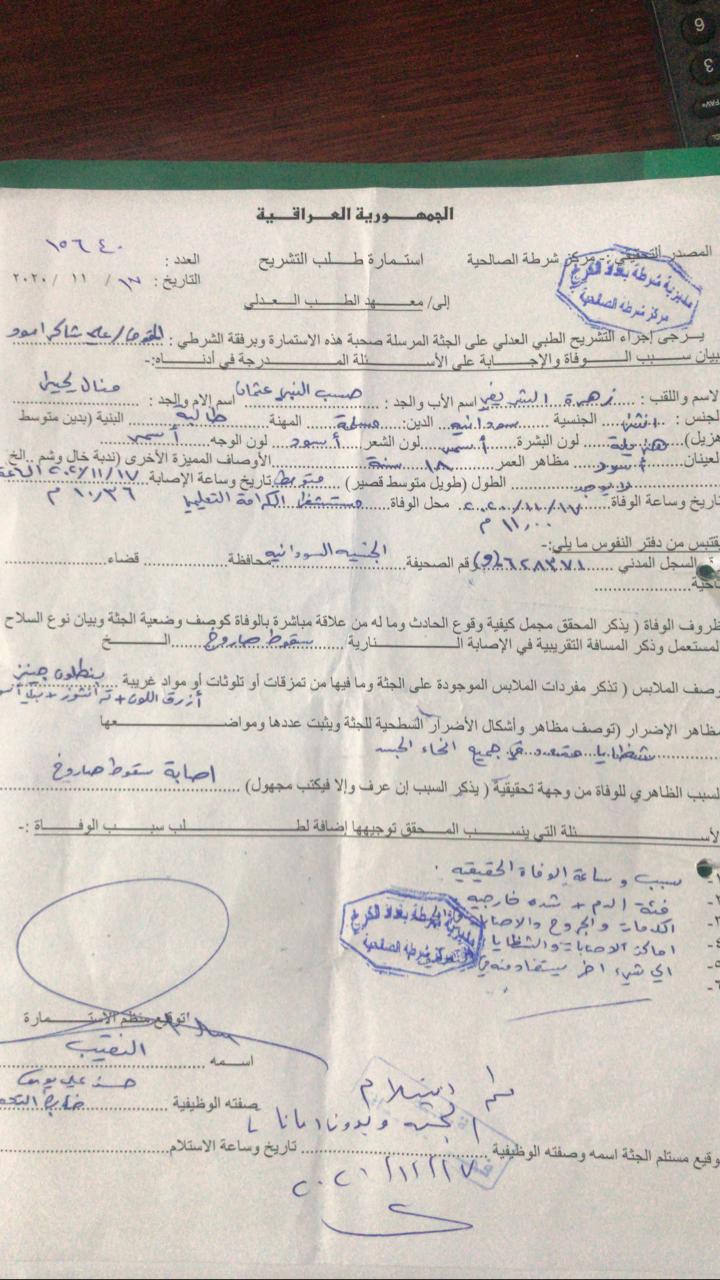 الجمهورية العراقية
المصدر التحقيقي :- مركز شرطة الصالحية
استمارة طلب التشريح
العدد : ١٥٦٤٠
التاريخ : ١٧ / ١١ / ٢٠٢٠
مديرية شرطة بغداد الكرخ
مركز شرطة الصالحية
إلى/ معهد الطب العدلي
يرجى إجراء التشريح الطبي العدلي على الجثة المرسلة صحبة هذه الاستمارة وبرفقة الشرطي : المفوض/علي شاكر
بيان سبب الوفاة والإجابة على الأسئلة المدرجة في أدناه:-
لاسم واللقب : زهرة اسم الأب والجد : عثمان اسم الام والجد : منال
لجنس : انثى الجنسية سودانية الدين: مسلمة المهنة طالبة البنية (بدين متوسط
هزيل) لون البشرة أسمر لون الشعر أسود لون الوجه أسمر
لعينان أسود مظاهر العمر ١٨ سنة الأوصاف المميزة الأخرى (ندبة خال وشم .. الخ
لا يوجد الطول (طويل متوسط قصير) متوسط تاريخ وساعة الإصابة ٢٠٢٠/١١/١٧ الساعة
تاريخ وساعة الوفاة ٢٠٢٠/١١/١٧ محل الوفاة مستشفى الكرامة التعليمي ١٠,٣٦ م
١١,٠٠ م
يقتبس من دفتر النفوس ما يلي:-
السجل المدني ٦٢٨٣٧١ رقم الصحيفة الجنسيه السودانيه محافظة قضاء
ناحية
ظروف الوفاة ( يذكر المحقق مجمل كيفية وقوع الحادث وما له من علاقة مباشرة بالوفاة كوصف وضعية الجثة وبيان نوع السلاح
لمستعمل وذكر المسافة التقريبية في الإصابة النارية سقوط صاروخ الخ
وصف الملابس ( تذكر مفردات الملابس الموجودة على الجثة وما فيها من تمزقات أو تلوثات أو مواد غريبة بنطلون جينز
أزرق اللون +
مظاهر الإضرار (توصف مظاهر وأشكال الأضرار السطحية للجثة ويثبت عددها ومواضعها
شظايا في جميع انحاء الجسم
لسبب الظاهري للوفاة من وجهة تحقيقية ( يذكر السبب إن عرف وإلا فيكتب مجهول) اصابة سقوط صاروخ
لأسئلة التي ينسب المحقق توجيهها إضافة لطلب سبب الوفاة :-
١- سبب وساعة الوفاة الحقيقيه .
٢- فئة الدم + شده خارجيه
٣- الكدمات والجروح والاصابات
٤- اماكن الاصابات والشظايا
٥- اي شيء اخر يستفاد منه
٦-
مديرية شرطة بغداد الكرخ
مركز شرطة الصالحية
توقيع منظم الاستمارة
اسمه النقيب
صفته الوظيفية
تم استلام
الجثه وبدون امانات
توقيع مستلم الجثة اسمه وصفته الوظيفية تاريخ وساعة الاستلام